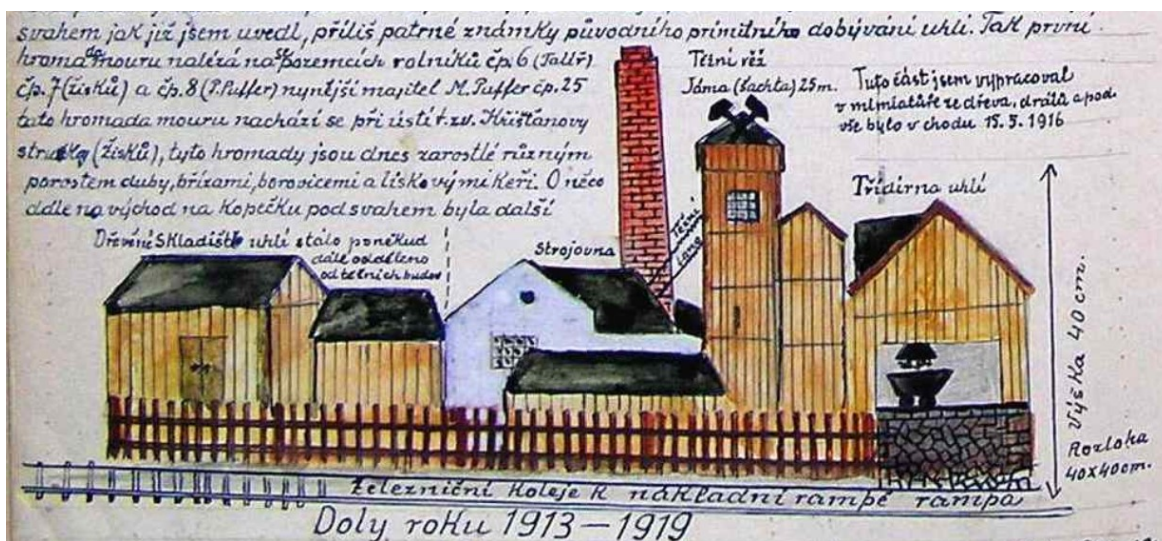 svahem jak již jsem uvedl, příliš patrné známky původního primitního dobývání uhlí. Tak první
hromada mouru nalézá se na pozemcích rolníků čp. 6 (Talíř)
čp. 7 (žisků) a čp. 8 (P. Puffer) nynější majitel M. Puffer čp. 25
tato hromada mouru nachází se při ústí t. zv. Křišťanovy
(žisků), tyto hromady jsou dnes zarostlé různým
porostem duby, břízami, borovicemi a lískovými keři. O něco
dále na východ na kopečku pod svahem byla další
Těžní věž
Jáma (šachta) 25 m.
Tuto část jsem vypracoval
v ze dřeva, drátů a pod.
vše bylo v chodu 15. 5. 1916
Dřevěné Skladiště uhlí stálo poněkud
dále odděleno
od těžních budov
Strojovna
Těžní
lano
Třídírna uhlí
Výška 40 cm.
Rozloha
40x40cm.
Železniční koleje k nákladní rampě rampa
Doly roku 1913 – 1919